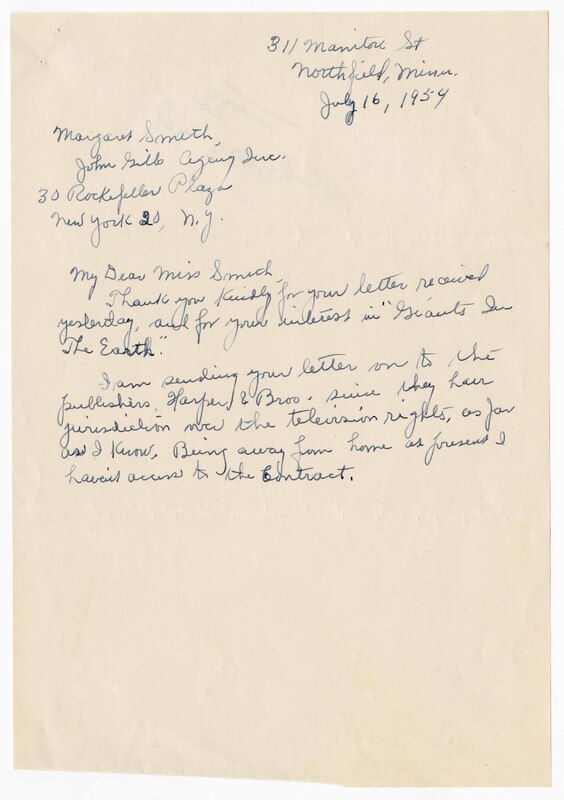 311 Manitou St
Northfield, Minn.
July 16, 1954
Margaret Smith,
John Gibbs Agency Inc.
30 Rockefeller Plaza
New York 20, N.Y.
My Dear Miss Smith,
Thank you kindly for your letter received
yesterday, and for your interest in "Giants In
The Earth".
I am sending your letter on to the
publishers, Harper & Bros. since they have
jurisdiction over the television rights, as far
as I know. Being away from home at present I
haven't access to the Contract.